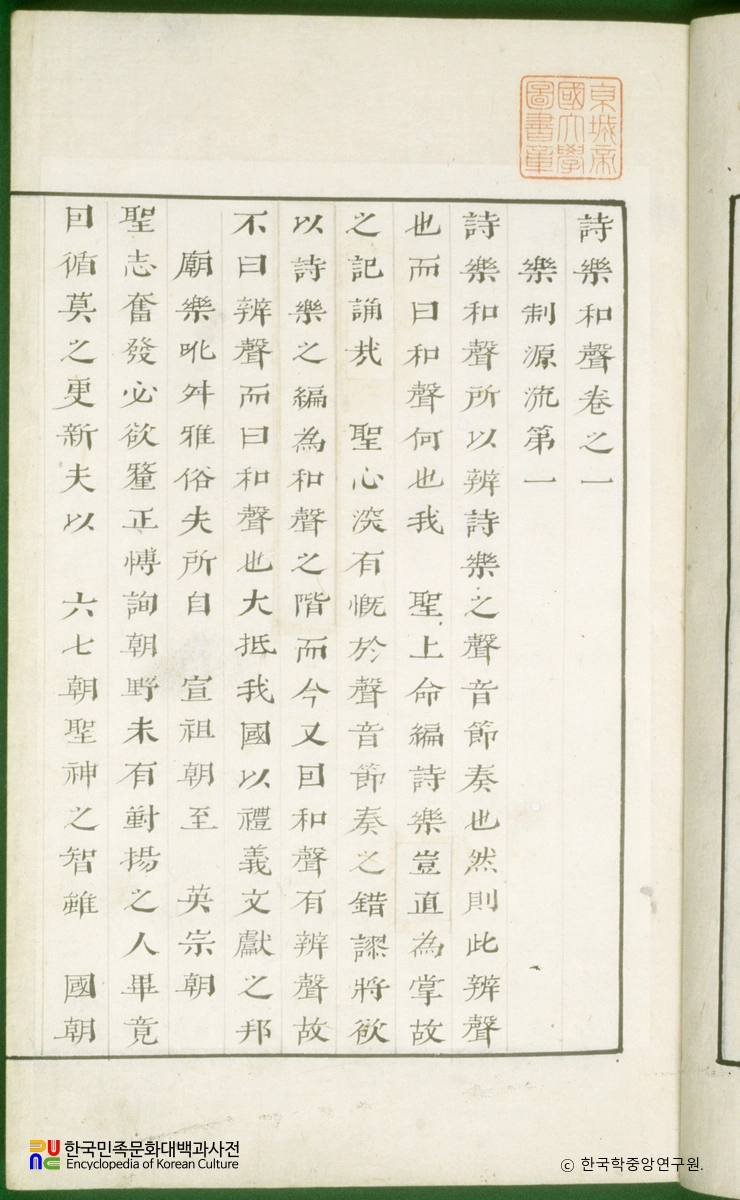 詩樂和聲卷之一
樂制源流第一
詩樂和聲所以辨詩樂之聲音節奏也然則此辨聲
也而曰和聲何也我 聖上命編詩樂豈直為掌故
之記誦哉 聖心深有慨於聲音節奏之錯謬將欲
以詩樂之編為和聲之階而今又回和聲有辨聲故
不曰辨聲而曰和聲也大抵我國以禮義文獻之邦
廟樂舛雅俗夫所自 宣祖朝至 英宗朝
聖志奮發必欲釐正愽詢朝野未有對揚之人畢竟
回循莫之更新夫以 六七朝聖神之智雖 國朝
京城帝國大學圖書章
한국민족문화대백과사전
Encyclopedia of Korean Culture
© 한국학중앙연구원.